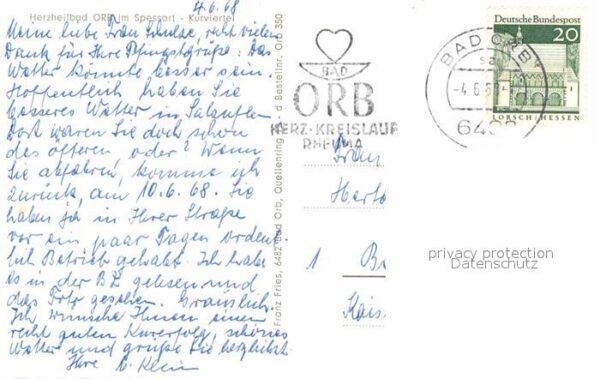 Herzheilbad ORB im Spessart - Kurviertel
4.6.68
Meine liebe Frau Schulse, recht vielen
Dank für Ihre Pfingstgrüße. Das
Wetter könnte besser sein.
Hoffentlich haben Sie
besseres Wetter in Salzuflen
Dort waren Sie doch schon
des öfteren oder? Wenn
Sie abfahren, komme ich
zurück, am 10.6.68. Sie
haben ja in Ihrer Straße
vor ein paar Tagen ordent
lich Betrieb gehabt. Ich habe
es in der BZ gelesen und
das Foto gesehen. Grauslich.
Ich wünsche Ihnen einen
recht guten Kurerfolg, schönes
Wetter und grüße Sie herzlichst.
Ihre
Klein
Franz Fries, 6482 Bad Orb, Quellenring
Bestellnr. Orb 350
BAD
ORB
HERZ-KREISLAUF
RHEUMA
BAD ORB
Deutsche Bundespost
20
LORSCH/HESSEN
Frau
1
Kais
privacy protection
Datenschutz